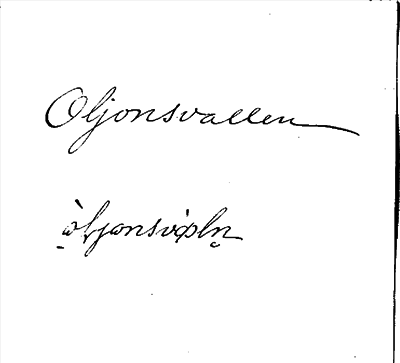 Oljonsvallen
òljɷnsvɑ̀ln̥